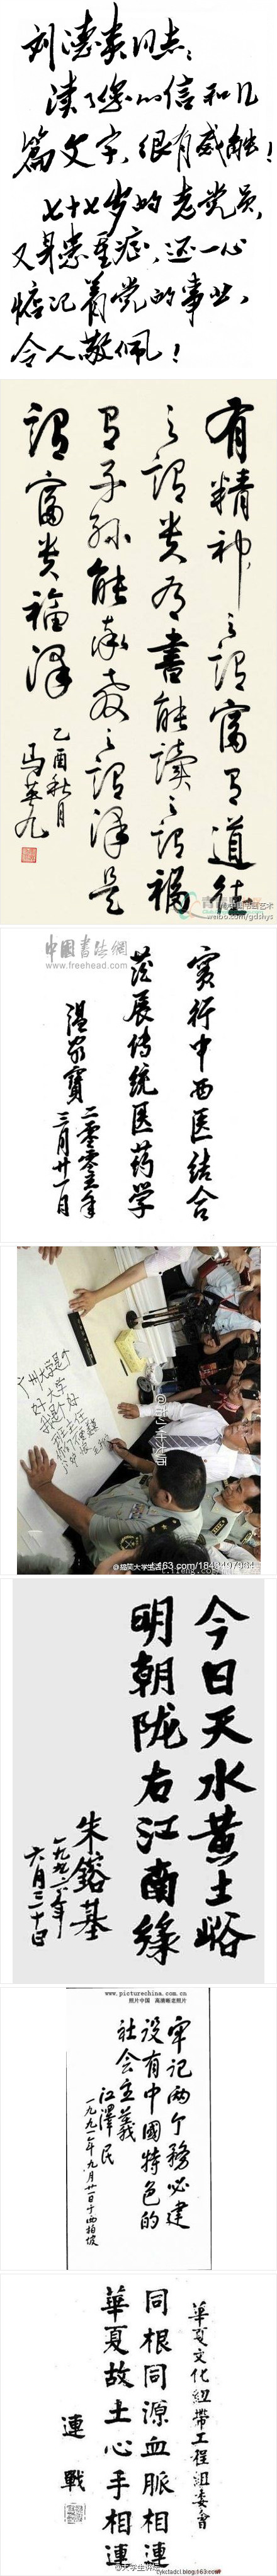 刘德寰同志：
读了您的信和几
篇文字，很有感触！
七十七岁的老党员，
又身患重症，还一心
惦记着党的事业，
令人敬佩！
有精神之谓富有道德
之谓贵有书能读之谓福
有子孙能承教之谓泽是
谓富贵福泽
乙酉秋月
马英九
weibo.com/gdshys
中國書法網
www.freehead.com
实行中西医结合
发展传统医药学
温家寶
二零零五年
三月廿一日
广州大学是个
好大学
今日天水黄土峪
明朝陇右江南缘
朱鎔基
一九九六年
六月二十日
www.picturechina.com.cn
照片中国 高清晰老照片
牢记两个务必建
设有中國特色的
社会主義
江澤民
一九九一年九月廿一日于西柏坡
華夏文化紐帶工程組委會
同根同源血脈相連
華夏故土心手相連
連戰